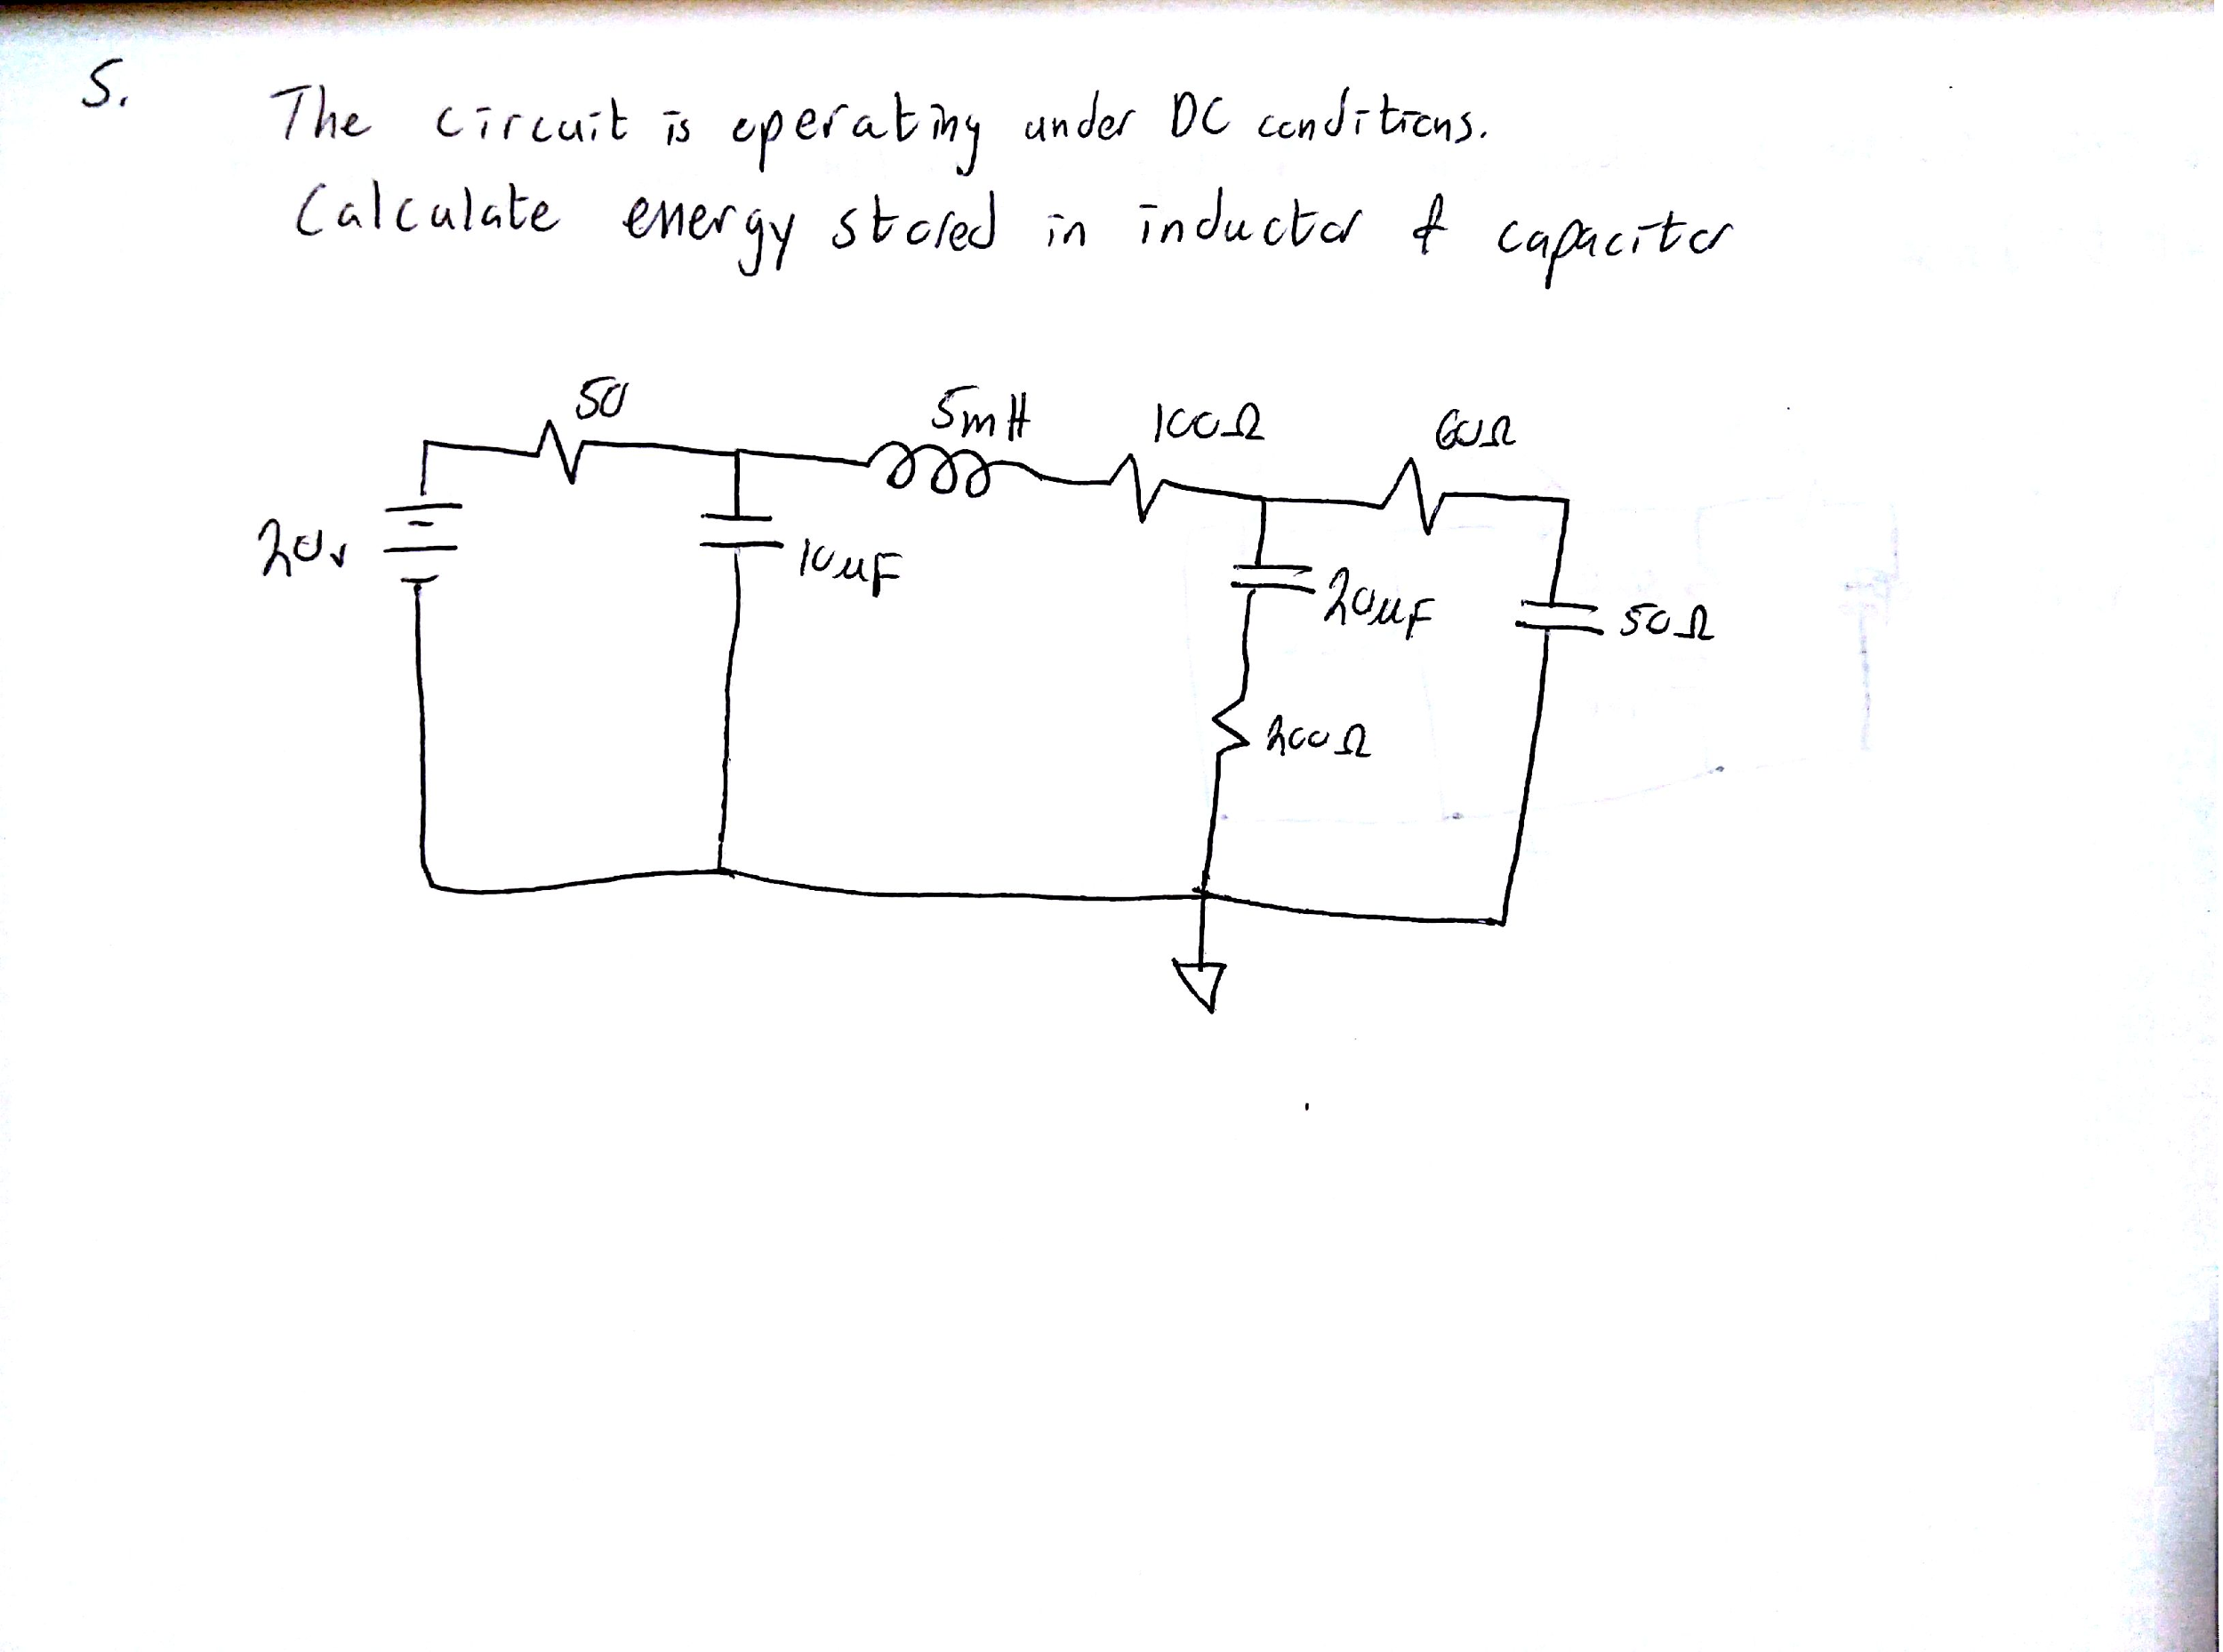 5.
The circuit is operating under DC conditions.
Calculate energy stored in inductor & capacitor
50
5mH
100Ω
60Ω
20v
10uF
20uF
50Ω
200Ω